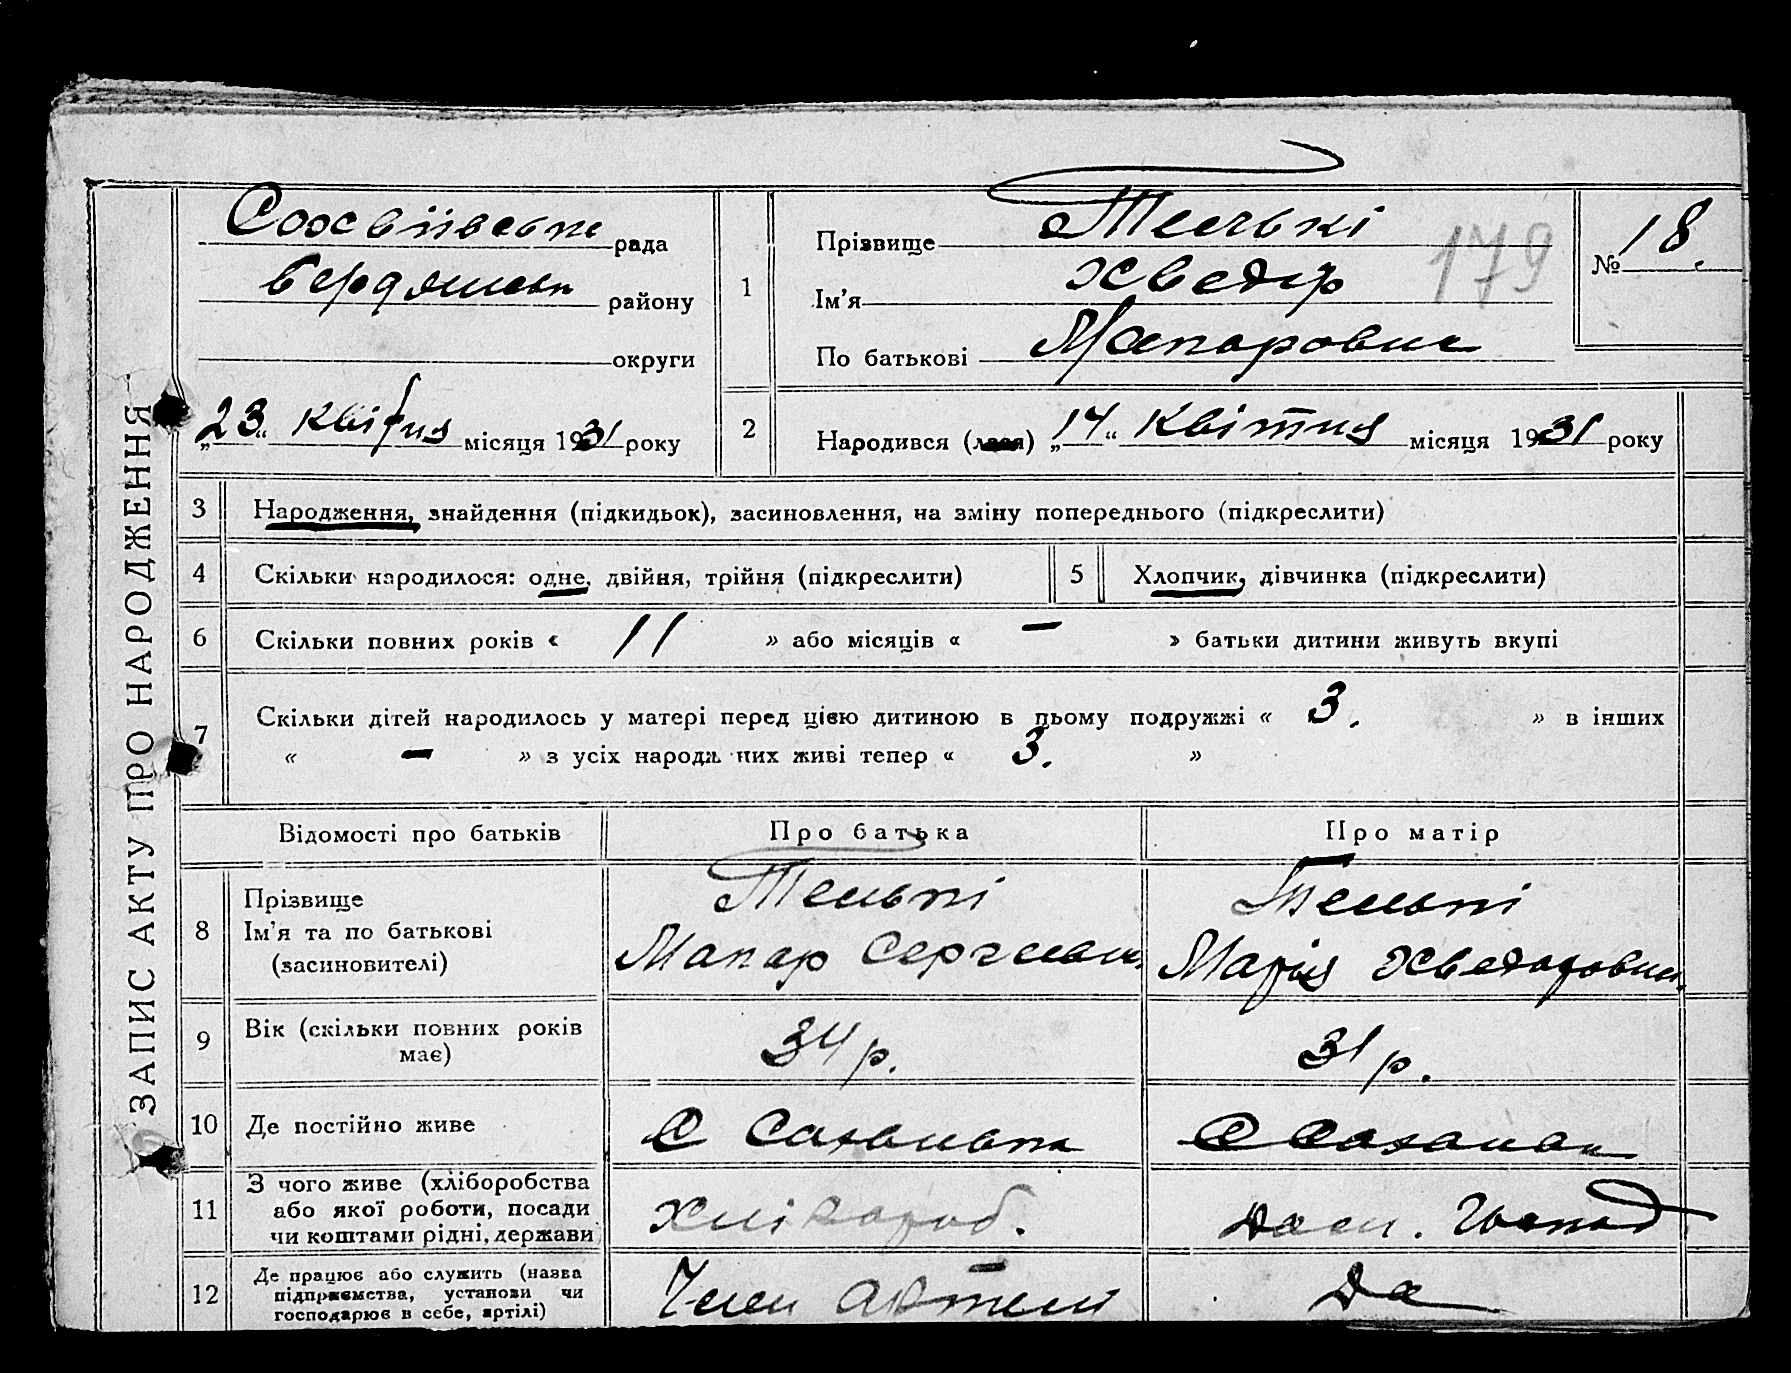 ЗАПИС АКТУ ПРО НАРОДЖЕННЯ
рада
району
округи
„23“ квітня місяця 1931 року
1
Прізвище
Ім'я Хведір
По батькові Макарович
179
№ 18.
2
Народився „14“ квітня місяця 1931 року
3 Народження, знайдення (підкидьок), засиновлення, на зміну попереднього (підкреслити)
4 Скільки народилося: одне, двійня, трійня (підкреслити)
5 Хлопчик, дівчинка (підкреслити)
6 Скільки повних років « 11 » або місяців « – » батьки дитини живуть вкупі
7 Скільки дітей народилось у матері перед цією дитиною в цьому подружжі « 3. » в інших
« – » з усіх народжених живі тепер « 3. »
Відомості про батьків
Про батька
Про матір
8 Прізвище
Ім'я та по батькові
(засиновителі)
Макар Сергієвич
Марія Хведоровна
9 Вік (скільки повних років
має)
34 р.
31 р.
10 Де постійно живе
С
С
11 З чого живе (хліборобства
або якої роботи, посади
чи коштами рідні, держави
Хлібороб.
Дом. Господ
12 Де працює або служить (назва
підприємства, установи чи
господарює в себе, артілі)
Член Артелі
До